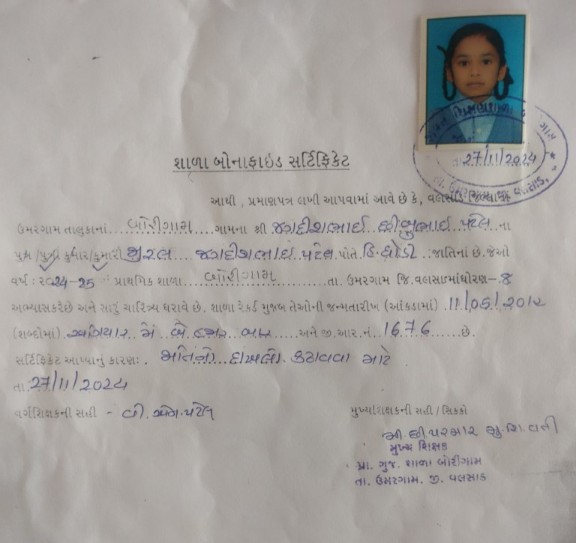 27/11/2024
શાળા બોનાફાઇડ સર્ટિફિકેટ
આથી, પ્રમાણપત્ર લખી આપવામાં આવે છે કે, વલસાડ
ઉમરગામ તાલુકાનાં બોરીગામ ગામના શ્રી જગદીશભાઈ છીબુભાઈ પટેલ ના
પુત્ર /પુત્રી કુમાર/કુમારી જગદીશભાઈ પટેલ પોતે હિ.ધોડી જાતિનાં છે.જેઓ
વર્ષ: ૨૦24-25 પ્રાથમિક શાળા બોરીગામ તા. ઉમરગામ જિ.વલસાડમાંધોરણ-8
અભ્યાસકરેછે અને સારું ચારિત્ર્ય ધરાવે છે. શાળા રેકર્ડ મુજબ તેઓની જન્મતારીખ (આંકડામાં) 11/05/2012
(શબ્દોમાં) અગિયાર મે બે હજાર બાર અને જી.આર.નં. 1676 છે.
સર્ટિફિકેટ આપ્યાનું કારણ: જાતિનો દાખલો કઢાવવા માટે
તા.27/11/2024
વર્ગશિક્ષકની સહી -
મુખ્યશિક્ષકની સહી / સિક્કો
મુખ્ય શિક્ષક
પ્રા. ગુજ. શાળા બોરીગામ
તા. ઉમરગામ, જી. વલસાડ